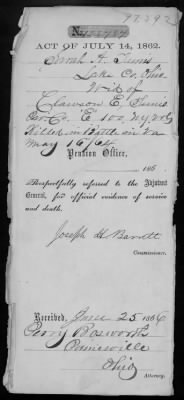 ACT OF JULY 14, 1862.
Sarah A.
Lake Co. Ohio
Wid of
Clawson E.
Co. E 100 N.Y. Vols
Killed in Battle in Va
May 16/64
Pension Office,
186
Respectfully referred to the Adjutant
General, for official evidence of service
and death.
Joseph H Barrett
Commissioner.
Received, June 25 1866
Perry Bosworth
Painesville
Ohio
Attorney.